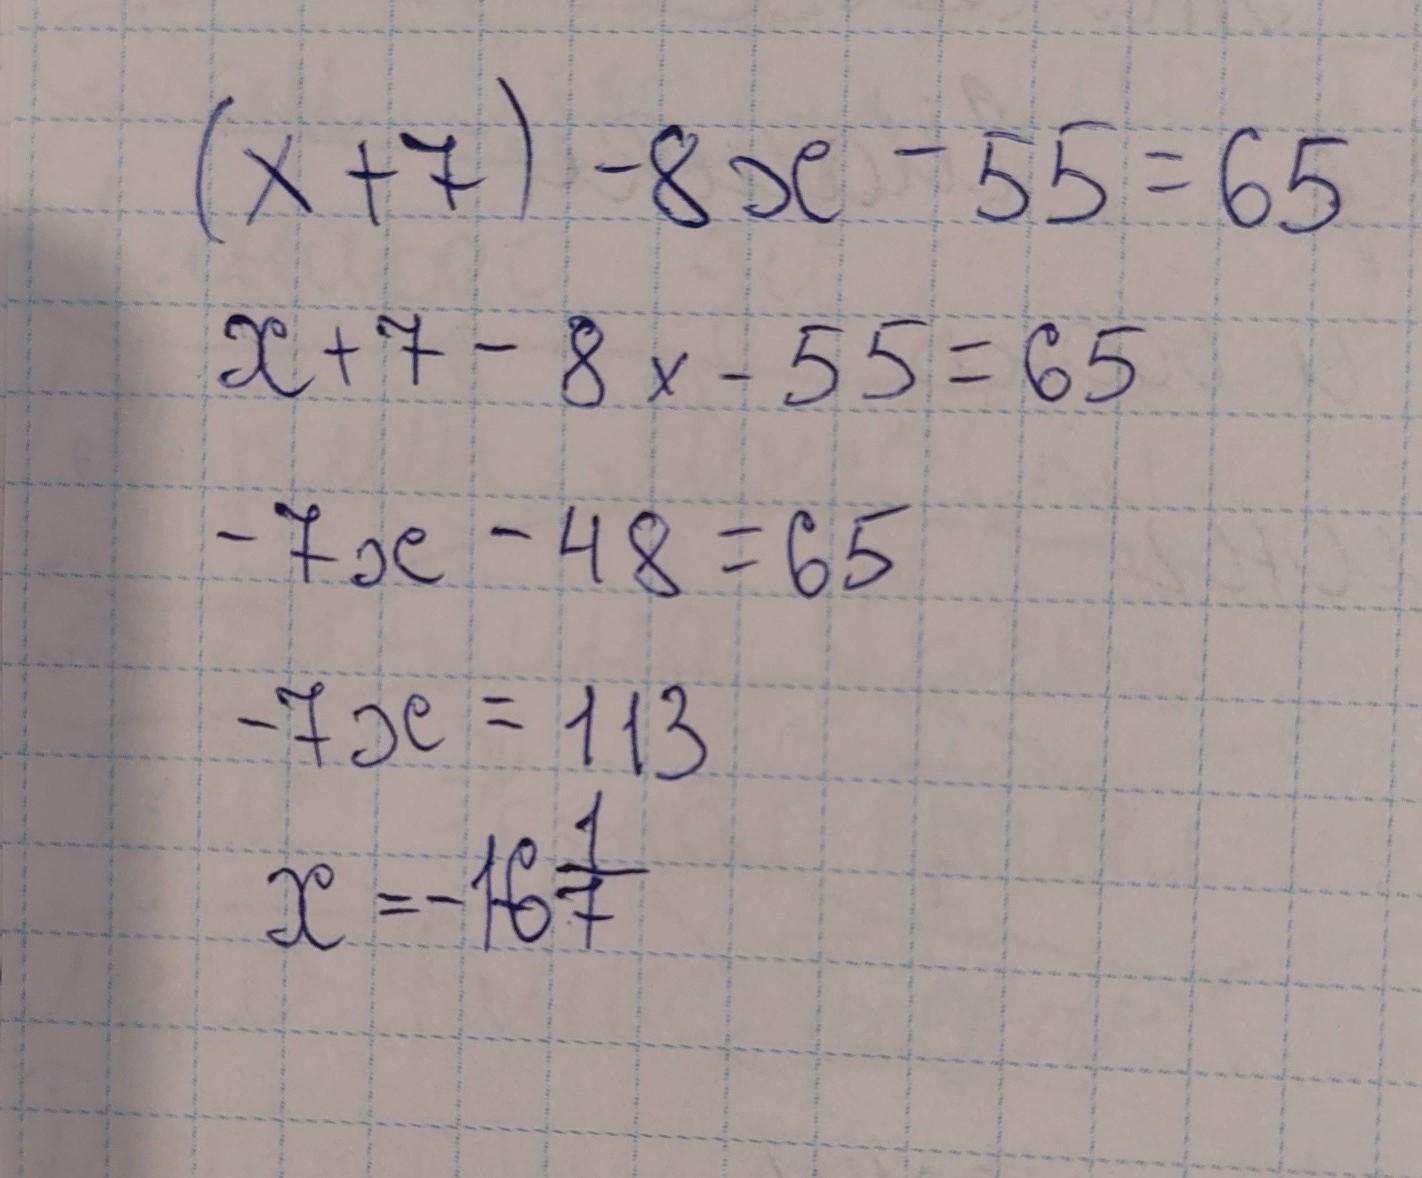 (x+7) -8x - 55 = 65
x+7 - 8x - 55 = 65
-7x - 48 = 65
-7x = 113
x = -16 1/7